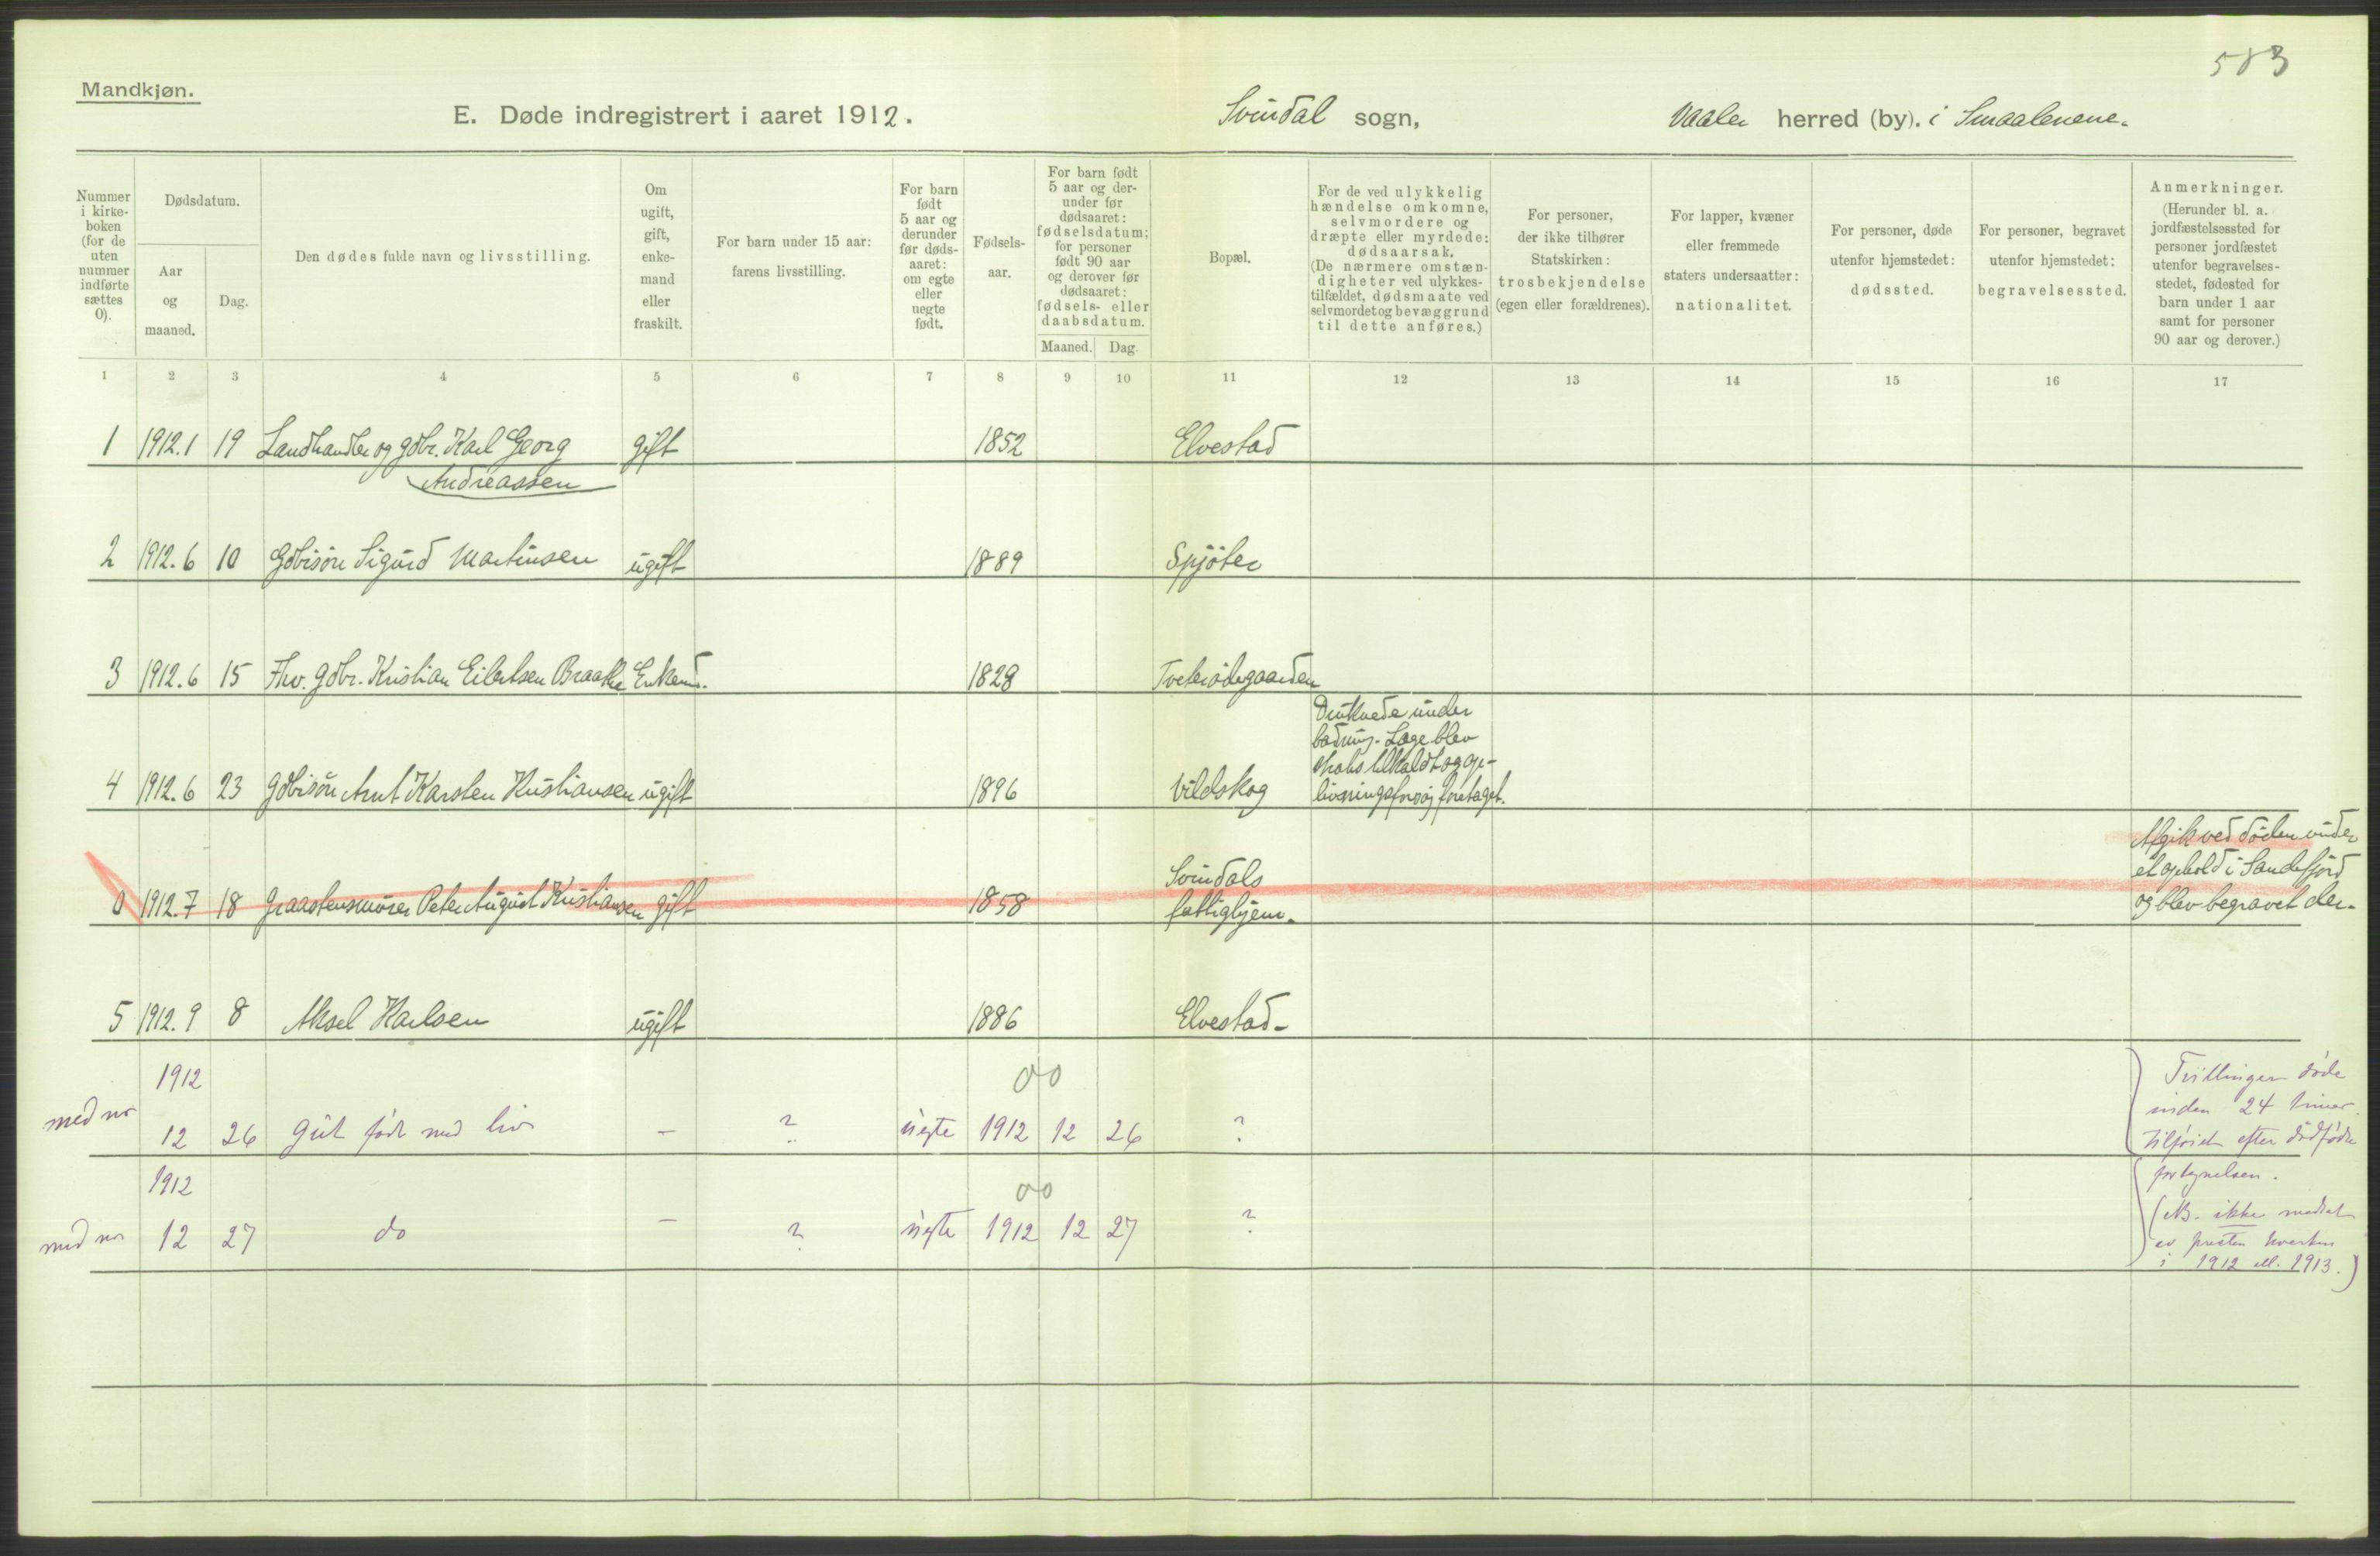 583
Mandkjøn.
E. Døde indregistrert i aaret 1912. Svindal sogn, Vaaler herred (by). i Smaalenene.
Nummer i kirke- boken (for de uten nummer indførte sættes 0).
Dødsdatum.
Aar og maaned.
Dag.
Den dødes fulde navn og livsstilling.
Om ugift, gift, enke- mand eller fraskilt.
For barn under 15 aar: farens livsstilling.
For barn født 5 aar og derunder før døds- aaret: om egte eller uegte født.
Fødsels- aar.
For barn født 5 aar og der- under før dødsaaret: fødselsdatum; for personer født 90 aar og derover før dødsaaret: fødsels- eller daabsdatum.
Maaned. Dag.
Bopæl.
For de ved ulykkelig hændelse omkomne, selvmordere og dræpte eller myrdede: dødsaarsak. (De nærmere omstæn- digheter ved ulykkes- tilfældet, dødsmaate ved selvmordet og bevæggrund til dette anføres.)
For personer, der ikke tilhører Statskirken: trosbekjendelse (egen eller forældrenes).
For lapper, kvæner eller fremmede staters undersaatter: nationalitet.
For personer, døde utenfor hjemstedet: dødssted.
For personer, begravet utenfor hjemstedet: begravelsessted.
Anmerkninger. (Herunder bl. a. jordfæstelsessted for personer jordfæstet utenfor begravelses- stedet, fødested for barn under 1 aar samt for personer 90 aar og derover.)
1 2 3 4 5 6 7 8 9 10 11 12 13 14 15 16 17
1 1912.1 19 Landhandler og gdbr. Karl Georg gift 1852 Elvestad
Andreassen
2 1912.6 10 Gdbrsøn Sigurd Martinsen ugift 1889 Spjøter
3 1912.6 15 Fhv. gdbr. Kristian Eilertsen Braathe Enkem. 1828 Tveterødegaarden
4 1912.6 23 Gdbrsøn Arnt Karsten Kristiansen ugift 1896 Vildskog
Druknede under
badning. Læge blev
straks tilkaldt og op-
livningsforsøg foretaget.
0 1912.7 18 Graastensmurer Peter August Kristiansen gift 1858 Svindals
fattighjem.
Afgik ved døden under
et ophold i Sandefjord
og blev begravet der.
5 1912.9 8 Aksel Karlsen ugift 1886 Elvestad.
1912 00
med nr 12 26 Gut født med liv – ? uegte 1912 12 26 ?
Tvillinger døde
inden 24 timer.
tilføiet efter dødfødte
1912 00
med nr 12 27 do – ? uegte 1912 12 27 ?
fortegnelsen.
(NB. ikke medtat
av presten hverken
i 1912 ell. 1913.)